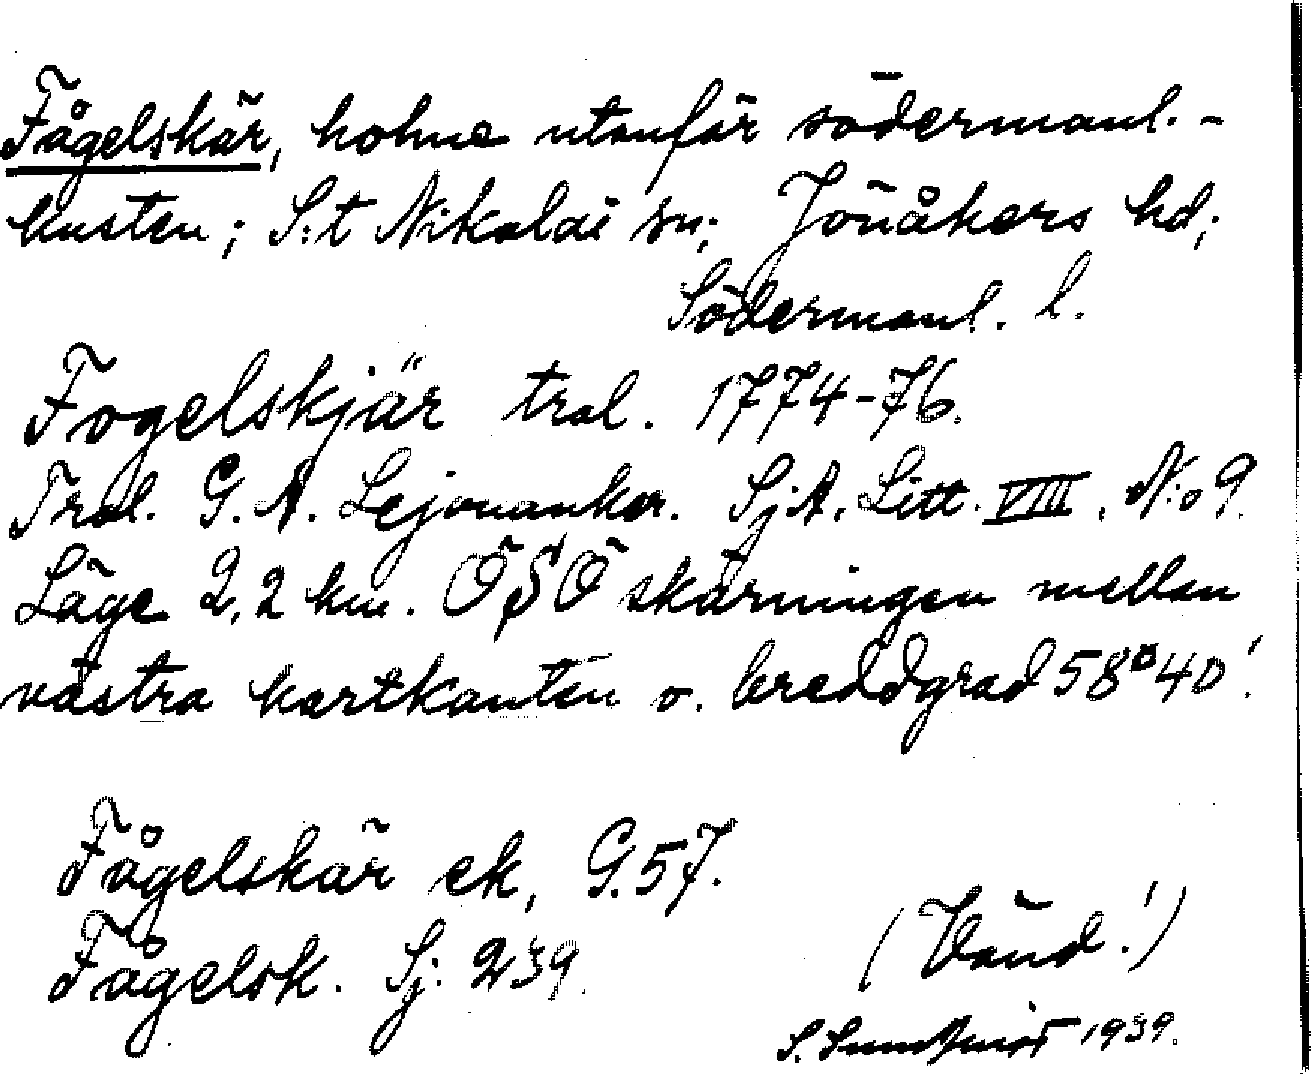 Fågelskär, holme utanför södermanl.-
kusten; S:t Nikolai sn; Jönåkers hd;
Södermanl. l.
Fogelskjär tral. 1774-76.
Tral. G. A. Lejonanker. Sj.A. Litt. VIII. N:o 9.
Läge 2,2 km. ÖSÖ skärningen mellan
västra kartkanten o. breddgrad 58°40'.
Fågelskär ek, G.57.
Fågelsk. Sj: 239.
(Vänd!)
S. 1939.